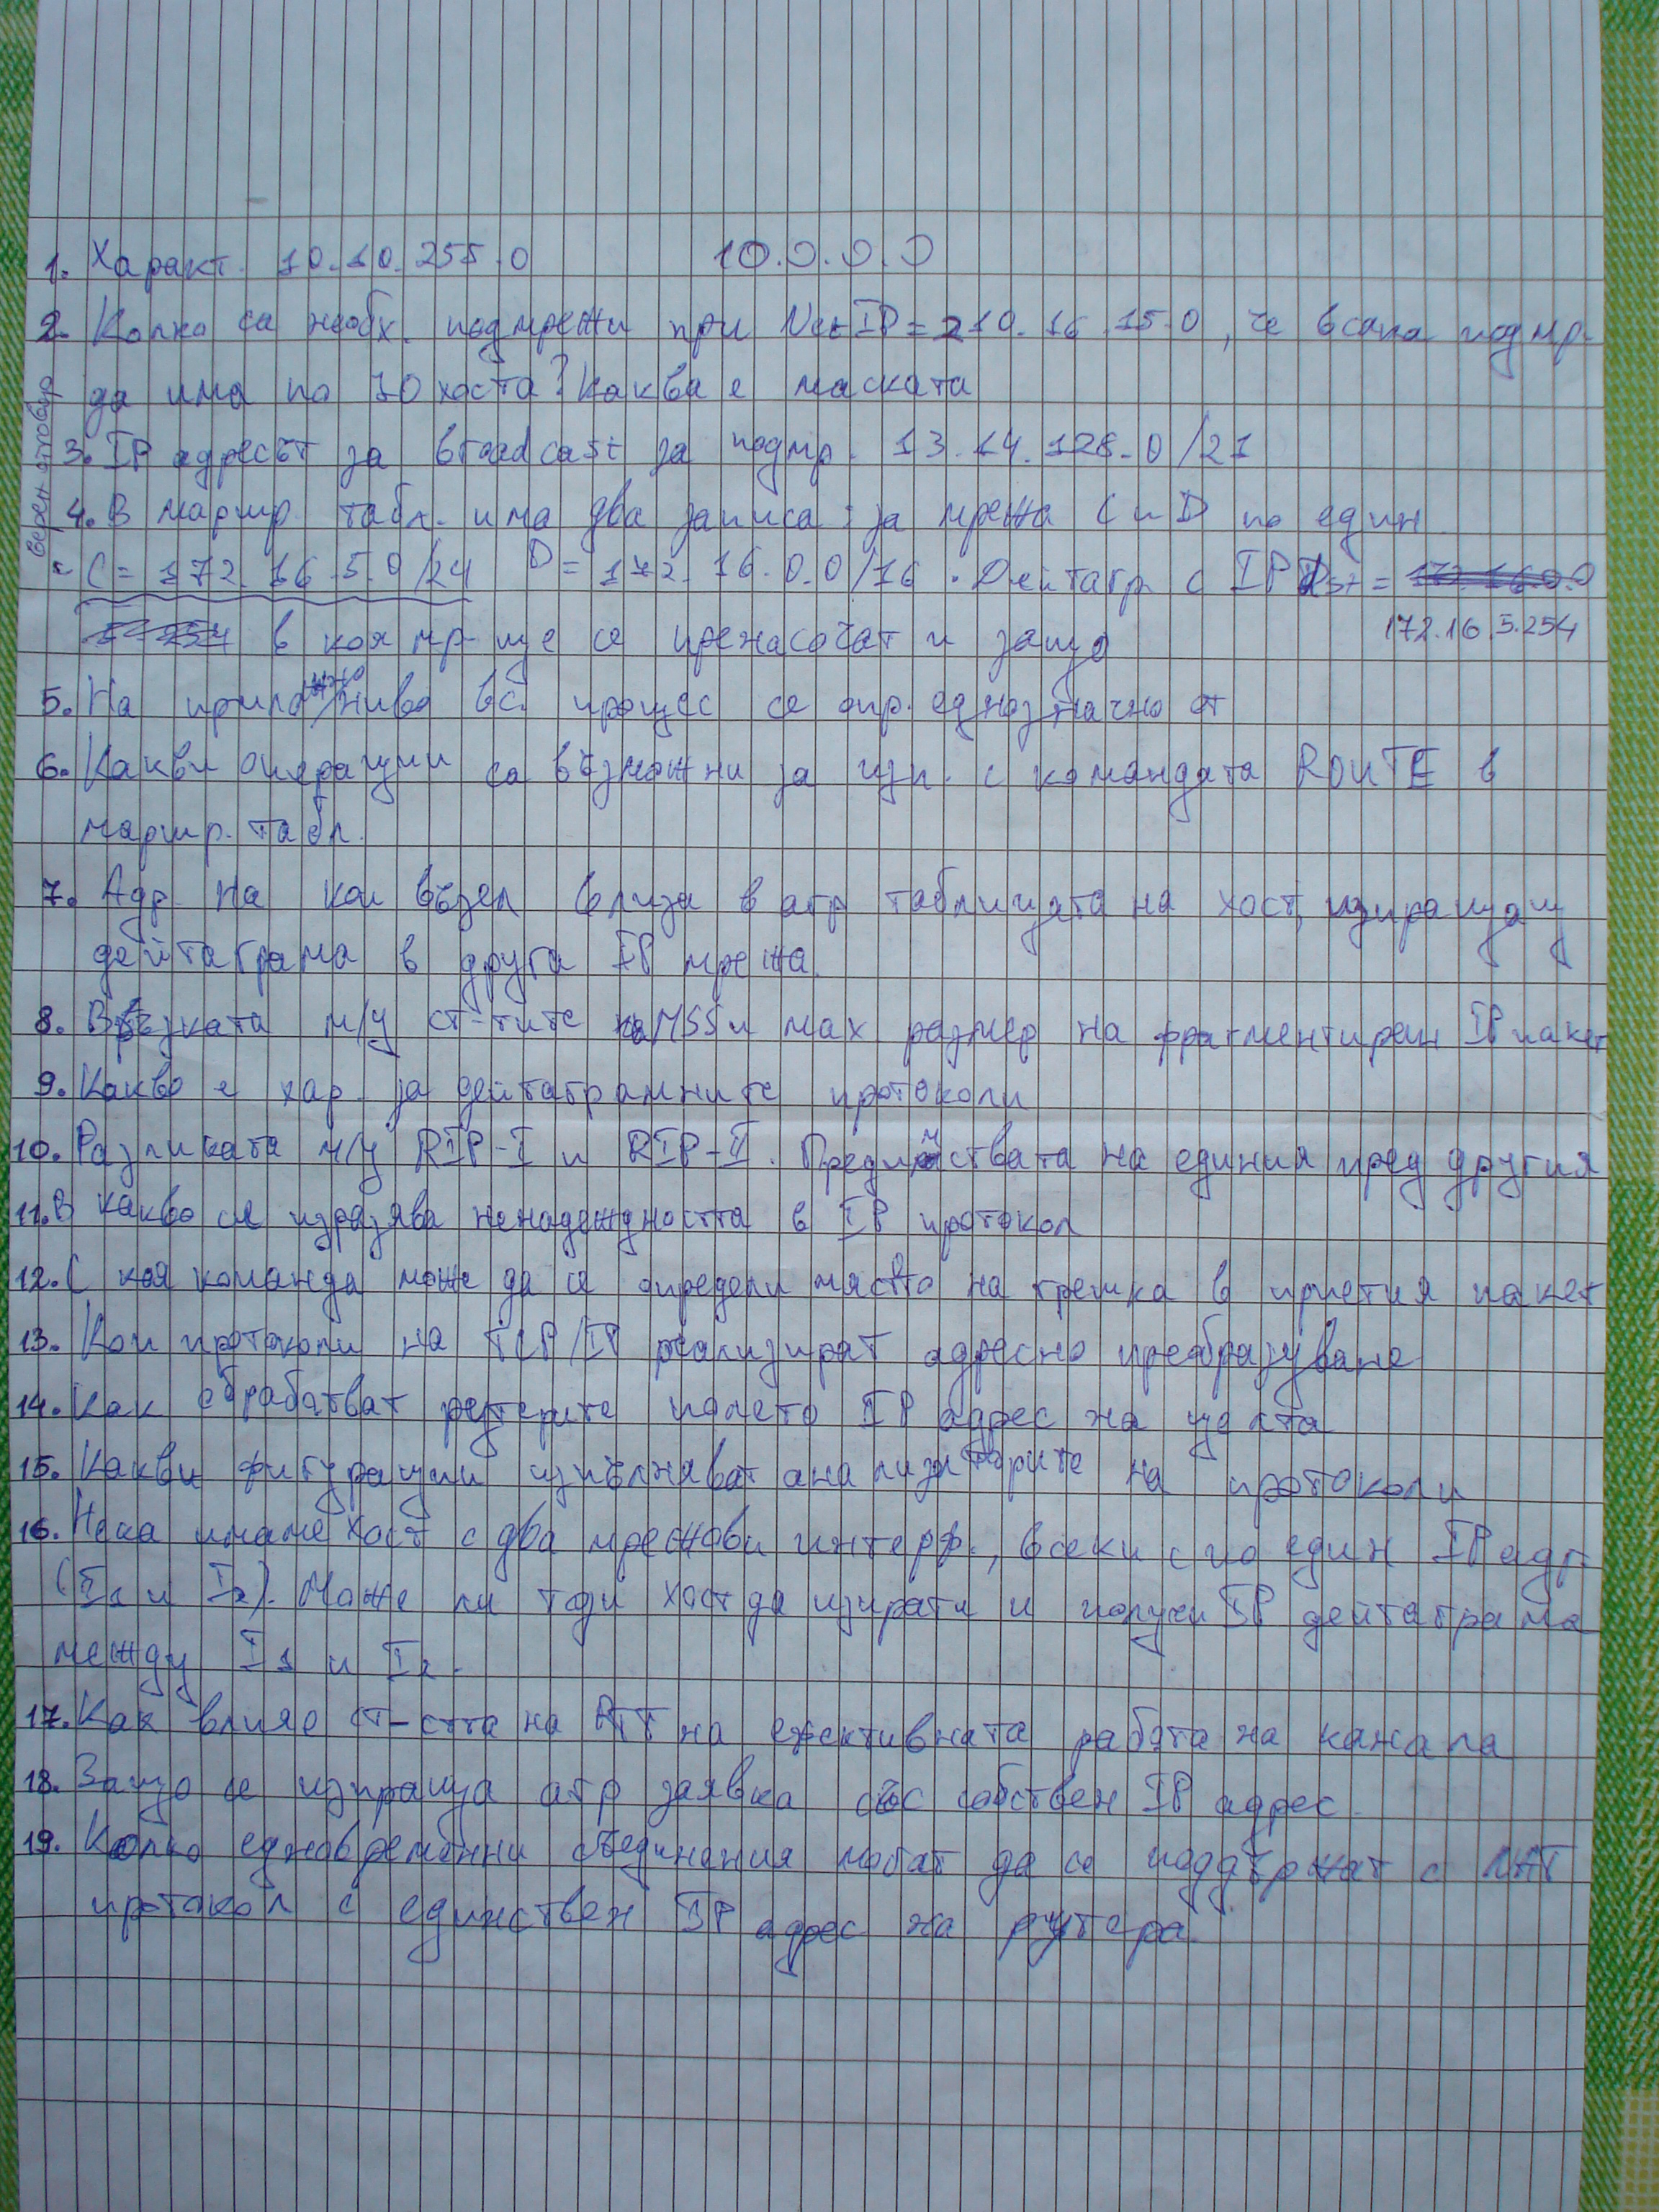 1. Характ. 10.10.255.0 10.0.0.0
2. Колко са необх. подмрежи при Net IP = 210.16.15.0, че всяка подмр.
да има по 70 хоста? Каква е маската
3. IP адресът за broadcast за подмр. 13.14.128.0/21
верен отговор
4. В маршр. табл. има два записа: за мрежа C и D по един
- C = 172.16.5.0/24 D = 172.16.0.0/16. Дейтагр. с IP Dst =
172.16.5.254
в коя мр. ще се пренасочат и защо
5. На приложно ниво вс. процес се опр. еднозначно от
6. Какви операции са възможни за изп. с командата ROUTE в
маршр. табл.
7. Адр. на кои възел влиза в arp таблицата на хост, изпращащ
дейтаграма в друга IP мрежа.
8. Връзката м/у ст-тите на MSS и max размер на фрагментиран IP пакет
9. Какво е хар. за дейтаграмните протоколи
10. Разликата м/у RIP-I и RIP-II. Предимствата на единия пред другия
11. В какво се изразява ненадеждността в IP протокол
12. С коя команда може да се определи място на грешка в приетия пакет
13. Кои протоколи на TCP/IP реализират адресно преобразуване
14. Как обработват рутерите полето IP адрес на целта
15. Какви фигурации изпълняват анализаторите на протоколи
16. Нека имаме хост с два мрежови интерф., всеки с по един IP адр.
(I1 и I2). Може ли този хост да изпрати и получи IP дейтаграма
между I1 и I2.
17. Как влияе ст-стта на RTT на ефективната работа на канала
18. Защо се изпраща arp заявка със собствен IP адрес.
19. Колко едновременни съединения могат да се поддържат с
протокол с единствен IP адрес на рутера.